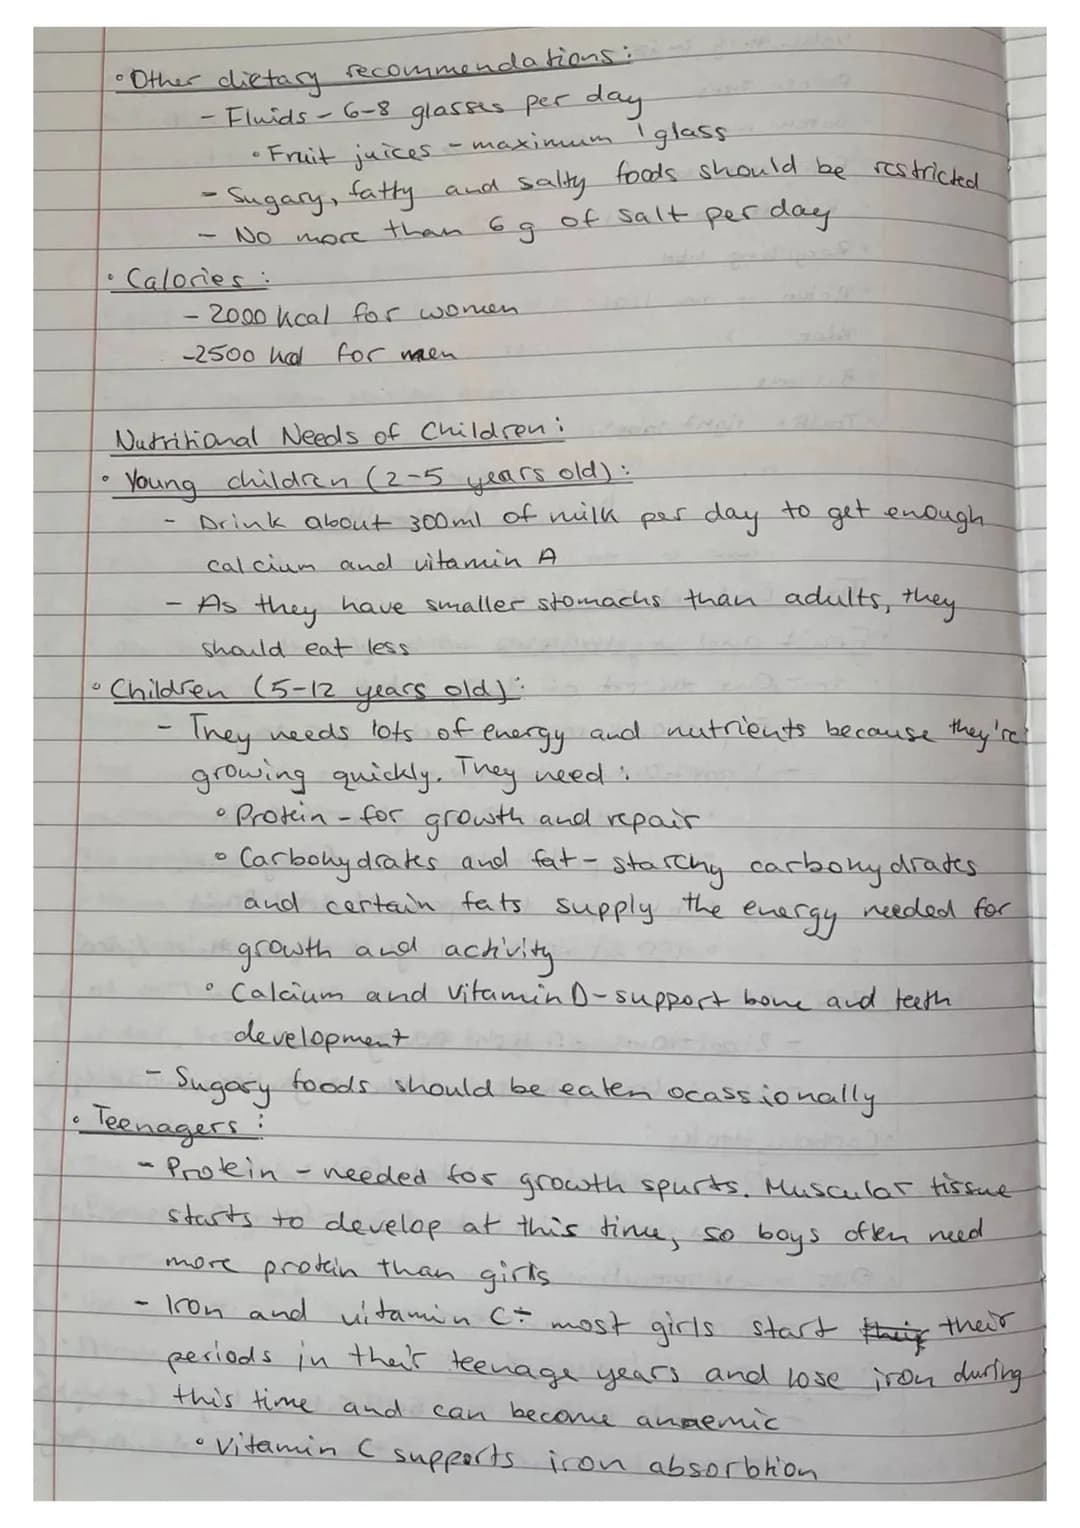 • Other dietary recommendations:
- Fluids - 6-8 glasses per day
• Fruit juices - maximum 1 glass
- Sugary, fatty and salty foods should be restricted
- No more than 6g of salt per day
• Calories:
- 2000 kcal for women
- 2500 kcal for men
Nutritional Needs of Children:
• Young children (2-5 years old):
- Drink about 300ml of milk per day to get enough
calcium and vitamin A
- As they have smaller stomachs than adults, they
should eat less
• Children (5-12 years old):
- They needs lots of energy and nutrients because they're
growing quickly. They need:
• Protein - for growth and repair
• Carbohydrates and fat - starchy carbohydrates
and certain fats supply the energy needed for
growth and activity
• Calcium and Vitamin D - support bone and teeth
development
- Sugary foods should be eaten ocassionally
• Teenagers:
- Protein - needed for growth spurts. Muscular tissue
starts to develop at this time, so boys often need
more protein than girls
- Iron and vitamin C: most girls start their their
periods in their teenage years and lose iron during
this time and can become anaemic
• Vitamin C supports iron absorbtion